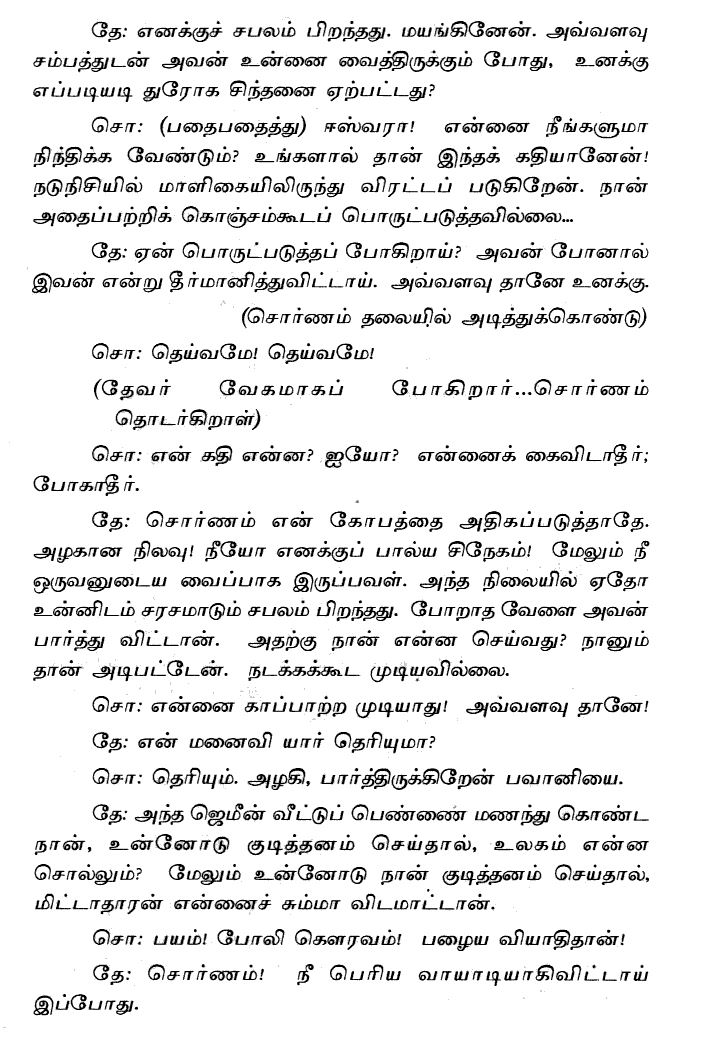 தே: எனக்குச் சபலம் பிறந்தது. மயங்கினேன். அவ்வளவு
சம்பத்துடன் அவன் உன்னை வைத்திருக்கும் போது, உனக்கு
எப்படியடி துரோக சிந்தனை ஏற்பட்டது?
சொ: (பதைபதைத்து) ஈஸ்வரா! என்னை நீங்களுமா
நிந்திக்க வேண்டும்? உங்களால் தான் இந்தக் கதியானேன்!
நடுநிசியில் மாளிகையிலிருந்து விரட்டப் படுகிறேன். நான்
அதைப்பற்றிக் கொஞ்சம்கூடப் பொருட்படுத்தவில்லை...
தே: ஏன் பொருட்படுத்தப் போகிறாய்? அவன் போனால்
இவன் என்று தீர்மானித்துவிட்டாய். அவ்வளவு தானே உனக்கு.
(சொர்ணம் தலையில் அடித்துக்கொண்டு)
சொ: தெய்வமே! தெய்வமே!
(தேவர் வேகமாகப் போகிறார்...சொர்ணம்
தொடர்கிறாள்)
சொ: என் கதி என்ன? ஐயோ? என்னைக் கைவிடாதீர்;
போகாதீர்.
தே: சொர்ணம் என் கோபத்தை அதிகப்படுத்தாதே.
அழகான நிலவு! நீயோ எனக்குப் பால்ய சிநேகம்! மேலும் நீ
ஒருவனுடைய வைப்பாக இருப்பவள். அந்த நிலையில் ஏதோ
உன்னிடம் சரசமாடும் சபலம் பிறந்தது. போறாத வேளை அவன்
பார்த்து விட்டான். அதற்கு நான் என்ன செய்வது? நானும்
தான் அடிபட்டேன். நடக்கக்கூட முடியவில்லை.
சொ: என்னை காப்பாற்ற முடியாது! அவ்வளவு தானே!
தே: என் மனைவி யார் தெரியுமா?
சொ: தெரியும். அழகி, பார்த்திருக்கிறேன் பவானியை.
தே: அந்த ஜெமீன் வீட்டுப் பெண்ணை மணந்து கொண்ட
நான், உன்னோடு குடித்தனம் செய்தால், உலகம் என்ன
சொல்லும்? மேலும் உன்னோடு நான் குடித்தனம் செய்தால்,
மிட்டாதாரன் என்னைச் சும்மா விடமாட்டான்.
சொ: பயம்! போலி கௌரவம்! பழைய வியாதிதான்!
தே: சொர்ணம்! நீ பெரிய வாயாடியாகிவிட்டாய்
இப்போது.